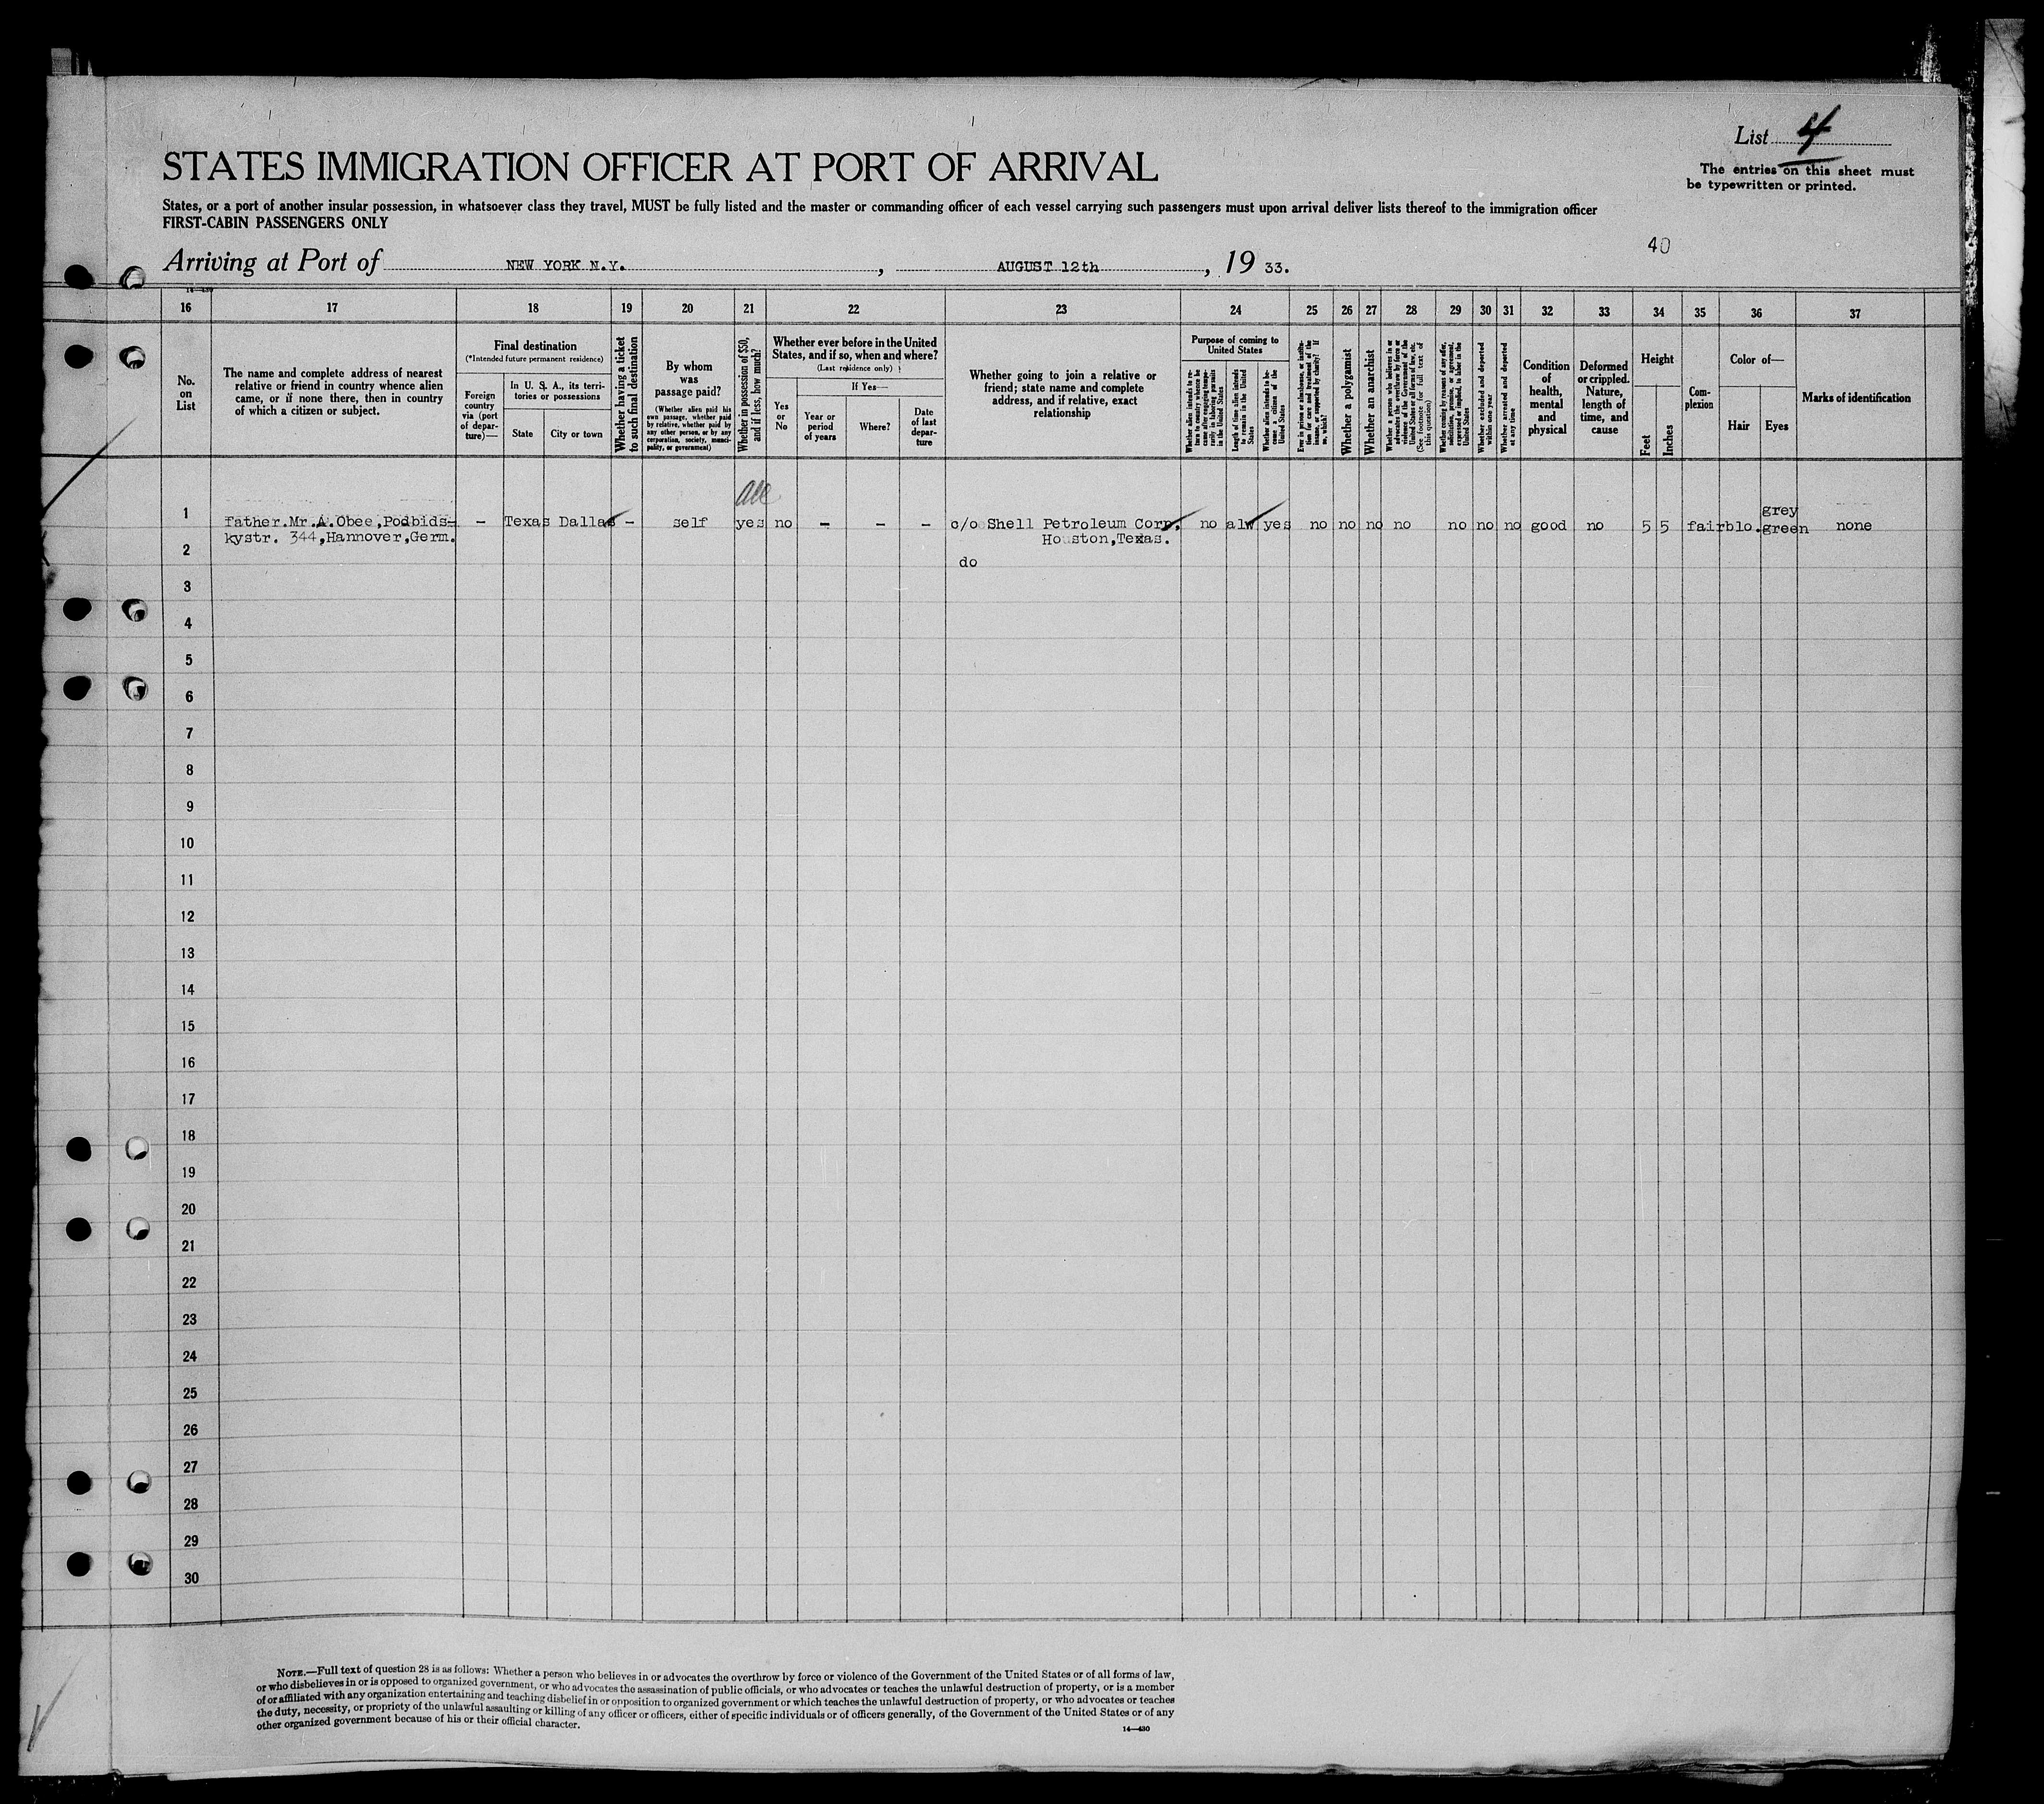 List 4
The entries on this sheet must
be typewritten or printed.
STATES IMMIGRATION OFFICER AT PORT OF ARRIVAL
States, or a port of another insular possession, in whatsoever class they travel, MUST be fully listed and the master or commanding officer of each vessel carrying such passengers must upon arrival deliver lists thereof to the immigration officer
FIRST-CABIN PASSENGERS ONLY
40
Arriving at Port of NEW YORK N.Y., AUGUST 12th, 19 33.
16 17 18 19 20 21 22 23 24 25 26 27 28 29 30 31 32 33 34 35 36 37
No.
on
List
The name and complete address of nearest
relative or friend in country whence alien
came, or if none there, then in country
of which a citizen or subject.
Final destination
(*Intended future permanent residence)
Foreign
country
via (port
of depar-
ture)—
In U. S. A., its terri-
tories or possessions
State
City or town
Whether having a ticket
to such final destination
By whom
was
passage paid?
(Whether alien paid his
own passage, whether paid
by relative, whether paid by
any other person, or by any
corporation, society, munici-
pality, or government)
Whether in possession of $50,
and if less, how much?
Whether ever before in the United
States, and if so, when and where?
(Last residence only)
Yes
or
No
If Yes—
Year or
period
of years
Where?
Date
of last
depar-
ture
Whether going to join a relative or
friend; state name and complete
address, and if relative, exact
relationship
Purpose of coming to
United States
Whether alien intends to re-
turn to country whence he
came after engaging tempo-
rarily in laboring pursuits
in the United States
Length of time alien intends
to remain in the United
States
Whether alien intends to be-
come a citizen of the
United States
Ever in prison or almshouse, or institu-
tion for care and treatment of the
insane, or supported by charity? If
so, which?
Whether a polygamist
Whether an anarchist
Whether a person who believes in or
advocates the overthrow by force or
violence of the Government of the
United States or all forms of law, etc.
(See footnote for full text of
this question)
Whether coming by reason of any offer,
solicitation, promise, or agreement,
expressed or implied, to labor in the
United States
Whether excluded and deported
within one year
Whether arrested and deported
at any time
Condition
of
health,
mental
and
physical
Deformed
or crippled.
Nature,
length of
time, and
cause
Height
Feet
Inches
Com-
plexion
Color of—
Hair
Eyes
Marks of identification
all
grey
1 father.Mr.A.Obee,Podbids- - Texas Dallas - self yes no - - - c/o Shell Petroleum Corp. no alw yes no no no no no no no good no 5 5 fair blo. green none
kystr. 344,Hannover,Germ. Houston,Texas.
2
do
3
4
5
6
7
8
9
10
11
12
13
14
15
16
17
18
19
20
21
22
23
24
25
26
27
28
29
30
NOTE.—Full text of question 28 is as follows: Whether a person who believes in or advocates the overthrow by force or violence of the Government of the United States or of all forms of law,
or who disbelieves in or is opposed to organized government, or who advocates the assassination of public officials, or who advocates or teaches the unlawful destruction of property, or is a member
of or affiliated with any organization entertaining and teaching disbelief in or opposition to organized government or which teaches the unlawful destruction of property, or who advocates or teaches
the duty, necessity, or propriety of the unlawful assaulting or killing of any officer or officers, either of specific individuals or of officers generally, of the Government of the United States or of any
other organized government because of his or their official character.
14—430